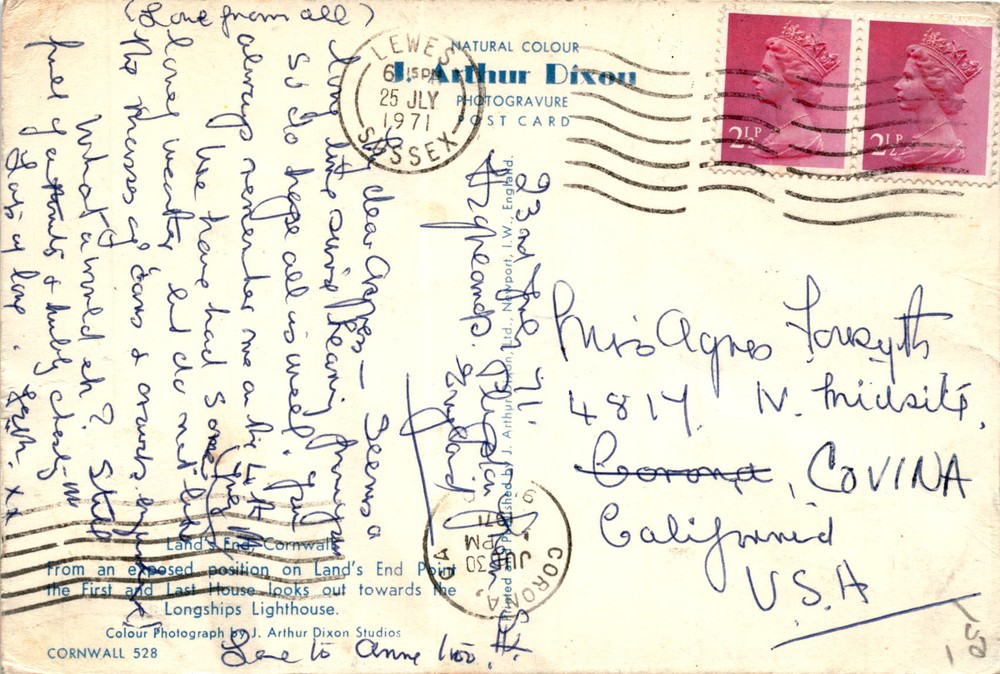 NATURAL COLOUR
J. Arthur Dixon
PHOTOGRAVURE
POST CARD
LEWES
6 15 PM
25 JLY
1971
SUSSEX
2½P
2½P
23rd July 71.
My dear Agnes — Seems a
long time since hearing from you
So do hope all is well. You
always remember me on the 4th
We have had some
lovely weather but do not like
the masses of cars & crowds
What a world eh? Still
full of & lovely
Lots of love. xx
(Love from all)
Love to Anne too.
Miss Agnes Forsyth
4817 N. Midsite.
Corona, COVINA
California
U.S.A
CORONA, CA
JUL 30
PM
1971
Printed and Published by J. Arthur Dixon, Ltd., Newport, I.W., England.
Land's End, Cornwall
From an exposed position on Land's End Point
the First and Last House looks out towards the
Longships Lighthouse.
Colour Photograph by J. Arthur Dixon Studios
CORNWALL 528